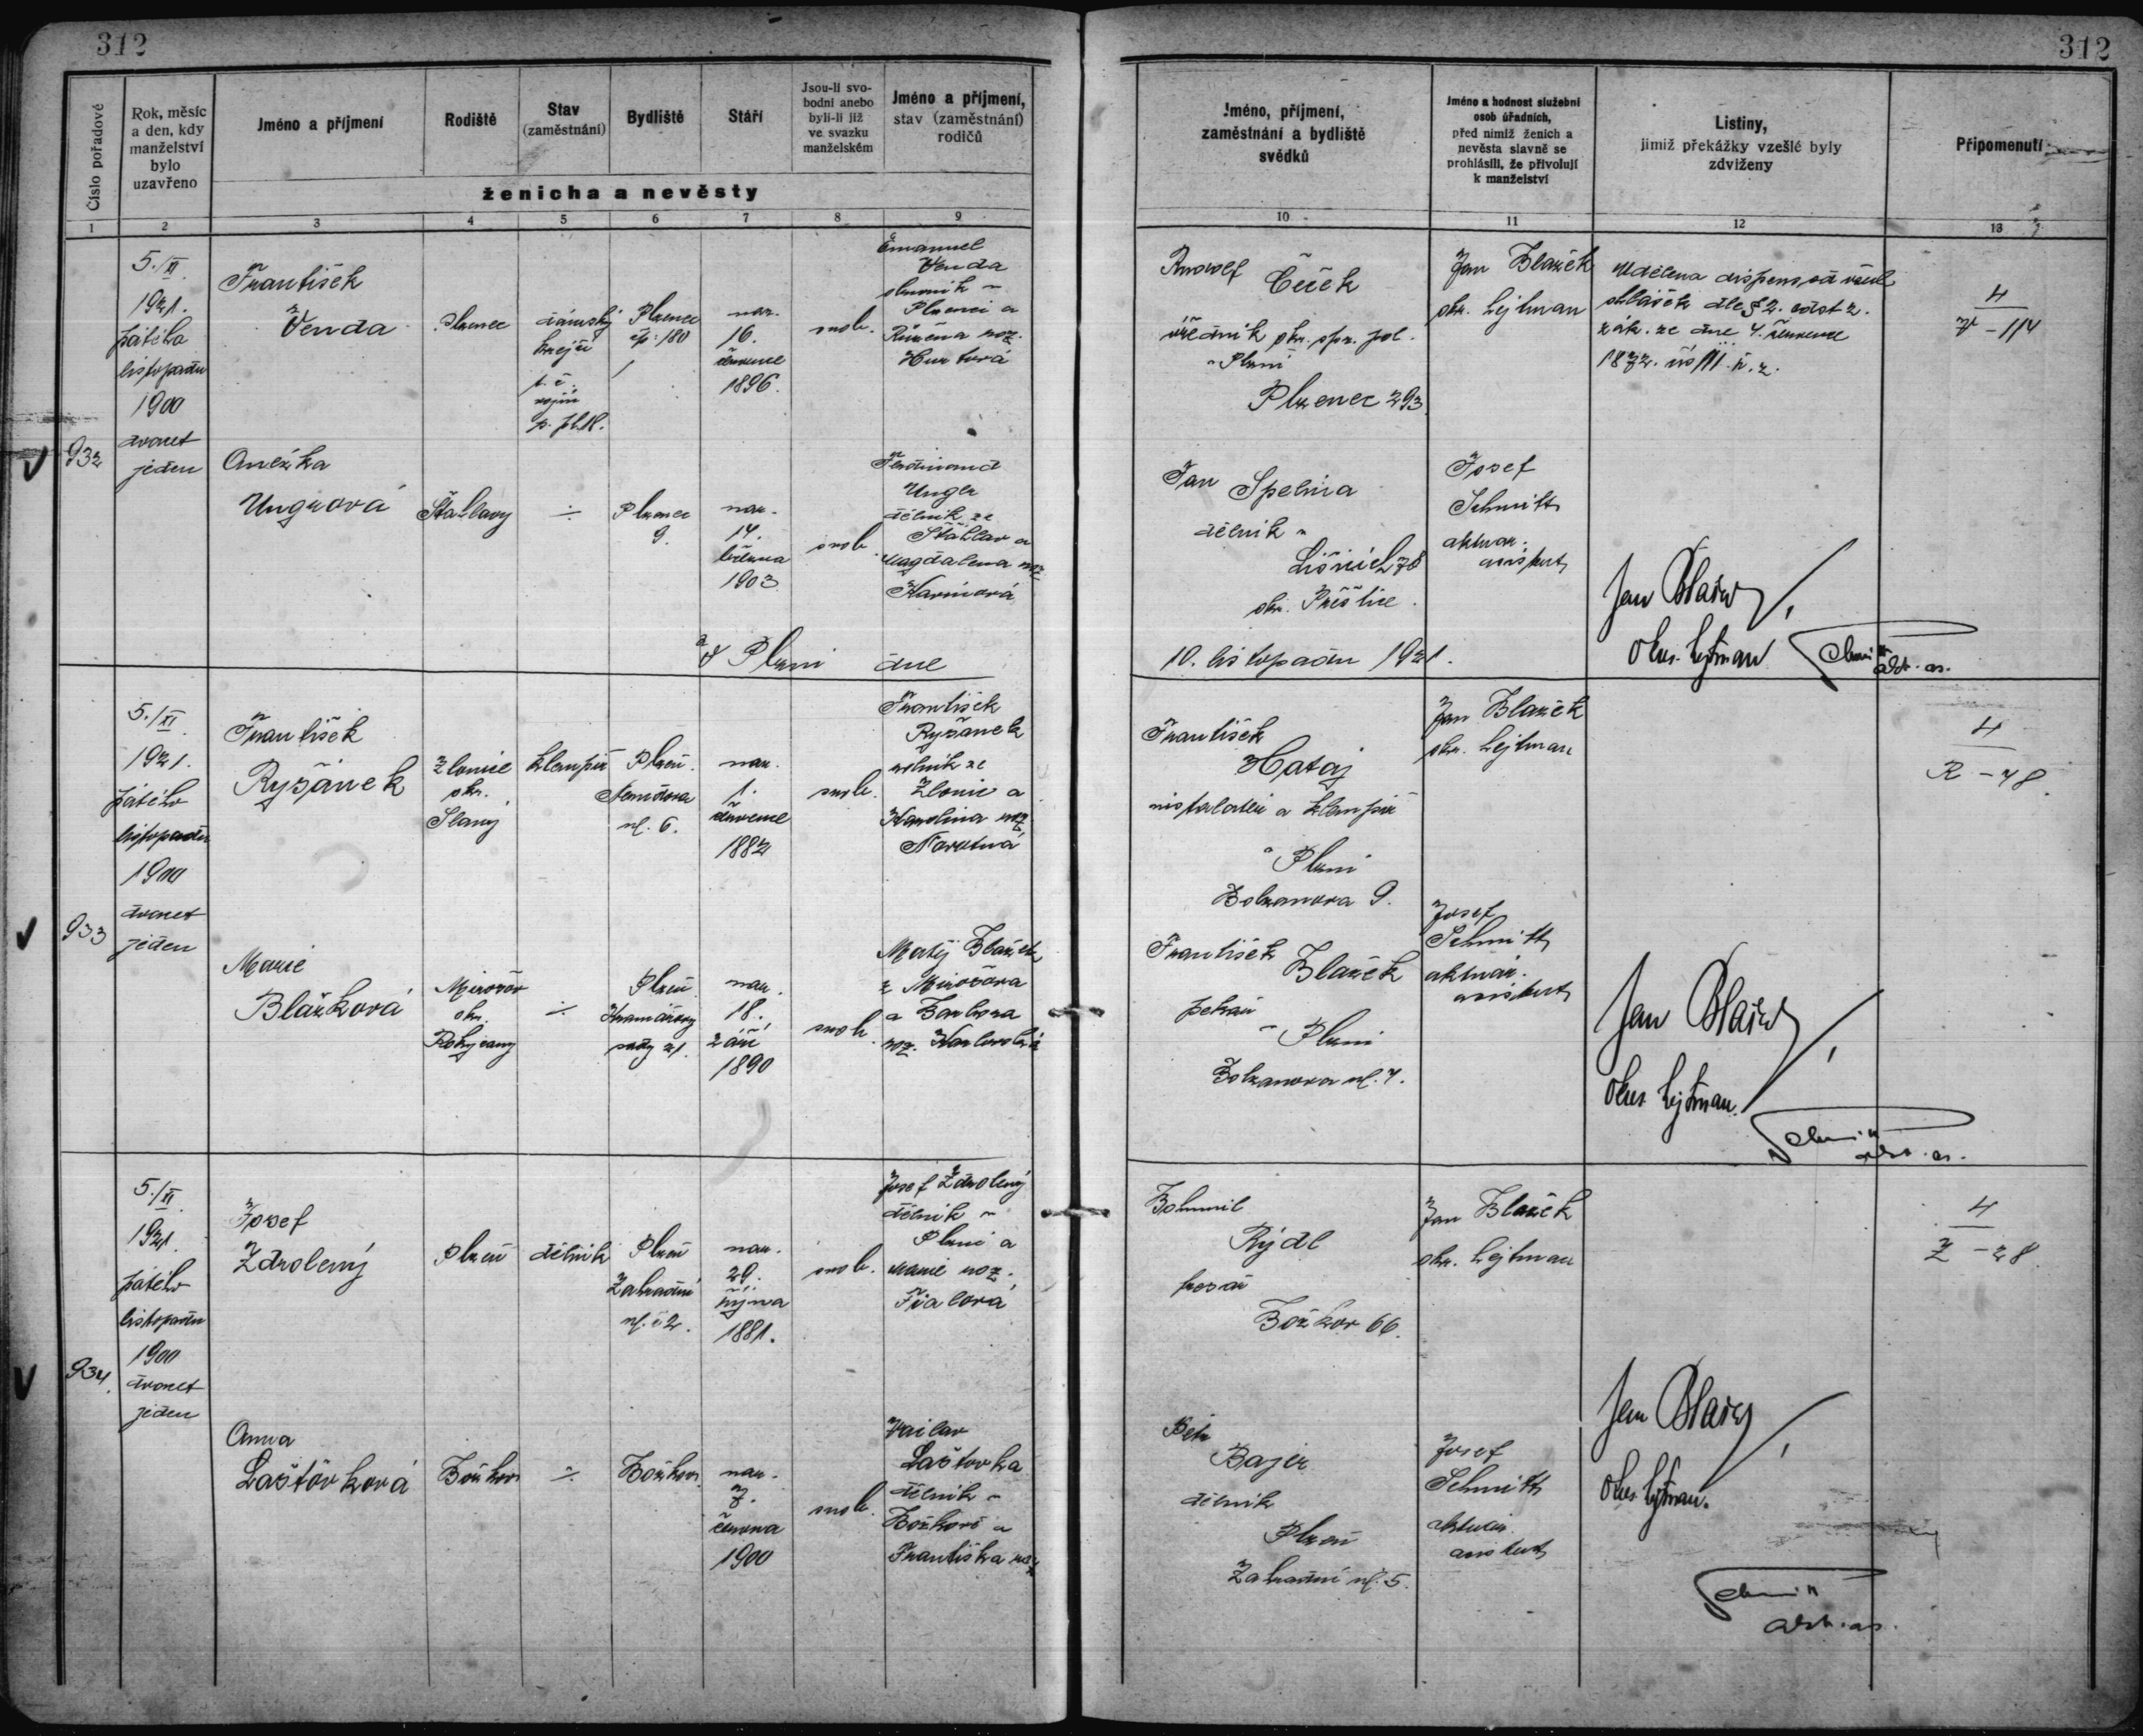 312
312
Číslo pořadové
Rok, měsíc
a den, kdy
manželství
bylo
uzavřeno
Jméno a příjmení
Rodiště
Stav
(zaměstnání)
Bydliště
Stáří
Jsou-li svo-
bodni anebo
byli-li již
ve svazku
manželském
Jméno a příjmení,
stav (zaměstnání)
rodičů
ženicha a nevěsty
Jméno, příjmení,
zaměstnání a bydliště
svědků
Jméno a hodnost služební
osob úřadních,
před nimiž ženich a
nevěsta slavně se
prohlásili, že přivolují
k manželství
Listiny,
jimiž překážky vzešlé byly
zdviženy
Připomenutí
1
2
3
4
5
6
7
8
9
10
11
12
13
932
5./XI.
1921.
pátého
listopadu
1900
dvacet
jeden
František
Venda
Plzenec
dámský
krejčí
t. č.
vojín
p. pl. 18.
Plzenec
čp. 180
nar.
16.
července
1896.
svob.
Emanuel
Venda
Plzenci a
Růžena roz.
Rudolf
Čeček
úředník okr. spr. pol.
v Plzni
Plzenec 293
Jan Blažek
okr. hejtman
Udělena dispens od všech
ohlášek dle § 2. část 2.
zák. ze dne 4. července
1872. čís 111. ř. z.
4
V - 114
Anežka
Ungrová
Šťáhlavy
÷
Plzenec
9.
nar.
14.
března
1903
svob.
Ferdinand
Ungr
dělník ze
Šťáhlav a
Magdalena roz
Jan Spelina
dělník v
78
okr. Přeštice.
Josef
Schmitt
aktuar.
assistent
Jan Blažek
okr. hejtman
Schmitt
akt. as.
V Plzni dne
10. listopadu 1921.
933
5./XI.
1921.
pátého
listopadu
1900
dvacet
jeden
František
Ryšánek
Zlonice
okr.
Slaný
klempíř
Plzeň
Nerudova
ul. 6.
nar.
1.
července
1882
svob.
František
Ryšánek
rolník ze
Zlonic a
Karolina roz.
Novotná
František
Hataj
instalatér a klempíř
v Plzni
Bolzanova 9.
Jan Blažek
okr. hejtman
4
R - 48.
Marie
Blažková
Mirošov
okr.
Rokycany
÷
Plzeň
Kramářovy
sady 21.
nar.
18.
září
1890
svob.
Matěj Blažek
z Mirošova
a Barbora
roz.
František
Blažek
pekař
v Plzni
Bolzanova ul. 7.
Josef
Schmitt
aktuár.
assistent
Jan Blažek
okr. hejtman.
Schmitt
akt. as.
934.
5./XI.
1921.
pátého
listopadu
1900
dvacet
jeden
Josef
Zdvolený
Plzeň
dělník
Plzeň
Zahradní
ul. č 2.
nar.
29.
října
1881.
svob.
Josef Zdvolený
dělník v
Plzni a
Marie roz.
Fialová
Bohumil
Rýdl
tesař
Božkov 66.
Jan Blažek
okr. hejtman
4
Z - 28.
Anna
Laštovková
Božkov
÷
Božkov
nar.
7.
června
1900
svob.
Václav
Laštovka
dělník v
Božkově a
Františka roz
Petr
Bajer
dělník
Plzeň
Zahradní ul. 5.
Josef
Schmitt
aktuár
assistent
Jan Blažek
okr. hejtman.
Schmitt
akt. as.